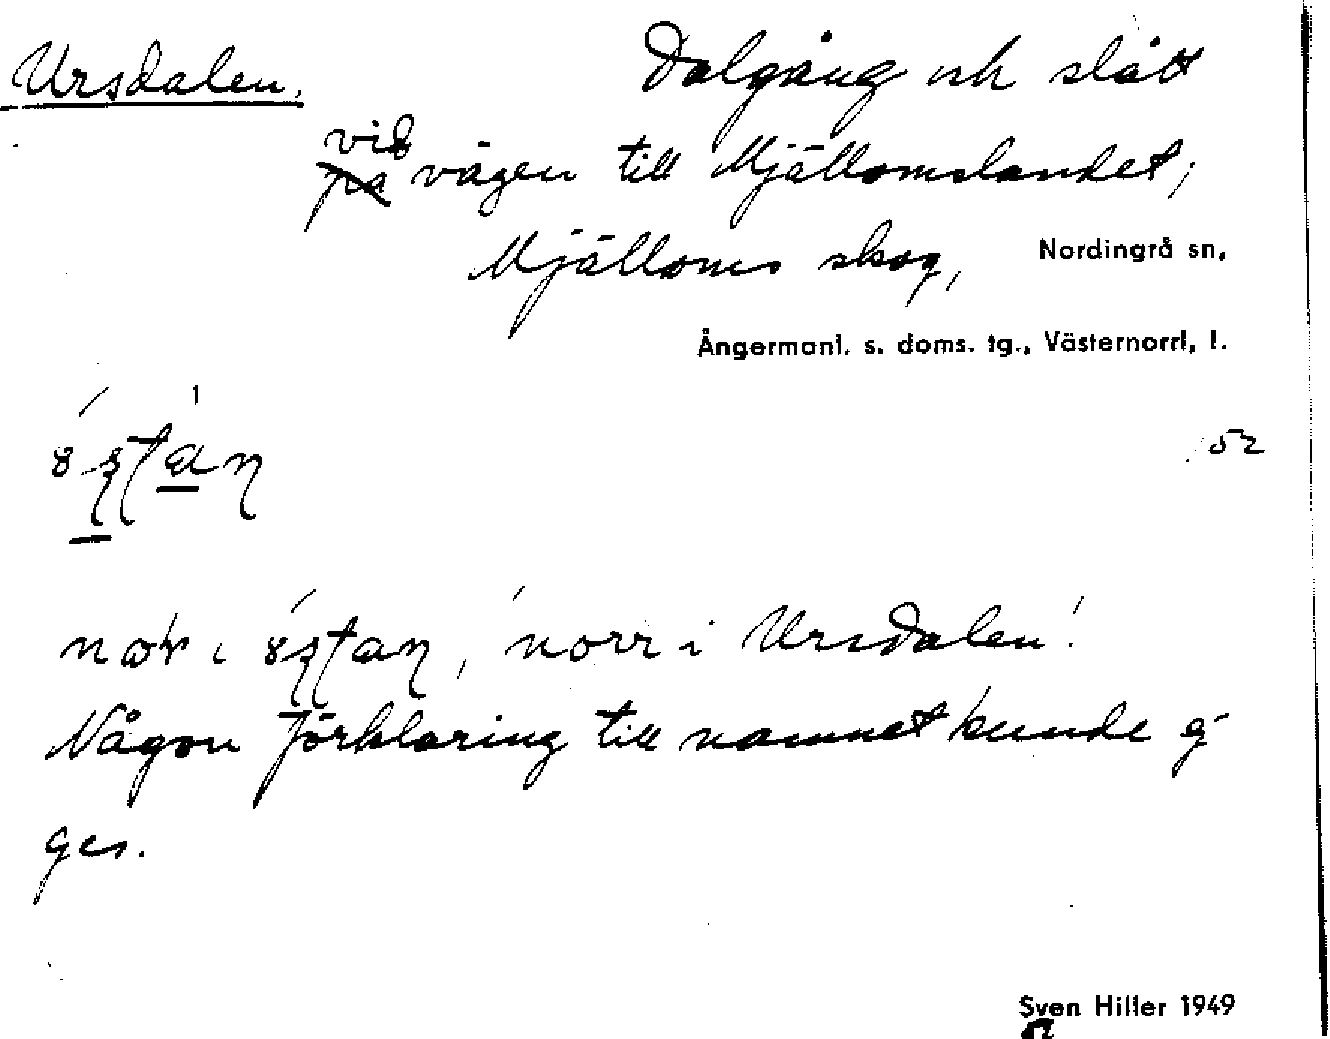 Ursdalen. Dalgång och slått
vid på vägen till Mjällomslandet;
Mjälloms skog, Nordingrå sn,
Ångermanl. s. doms. tg., Västernorrl, l.
52
norr i Ursdalen'.
Någon förklaring till namnet kunde ej
ges.
Sven Hiller 1949
52